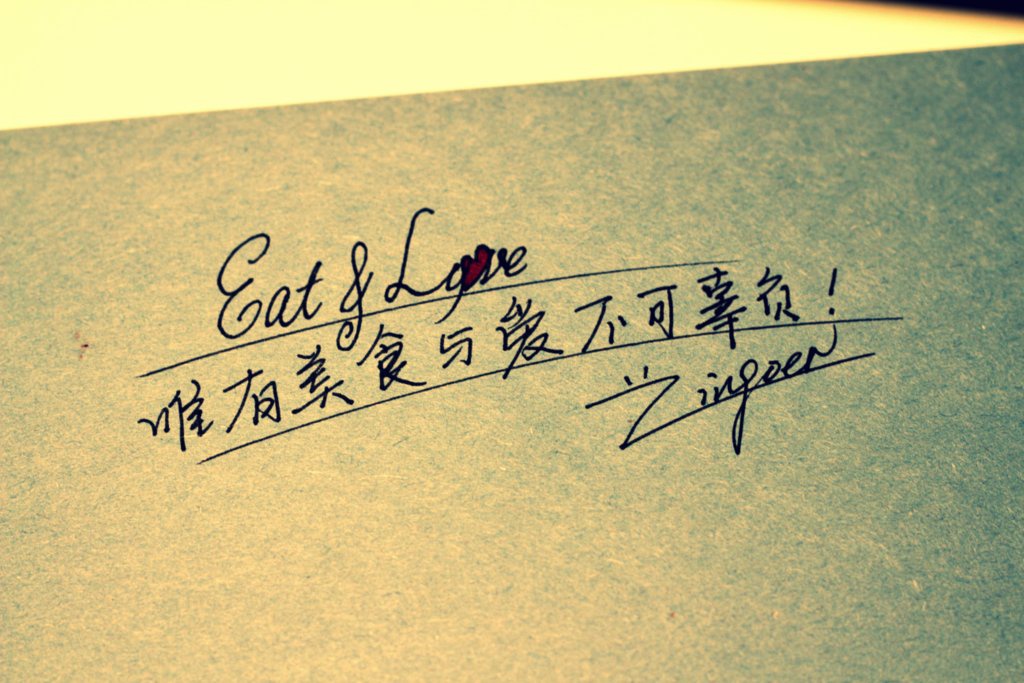 Eat & Love
唯有美食与爱不可辜负!
Zingoen